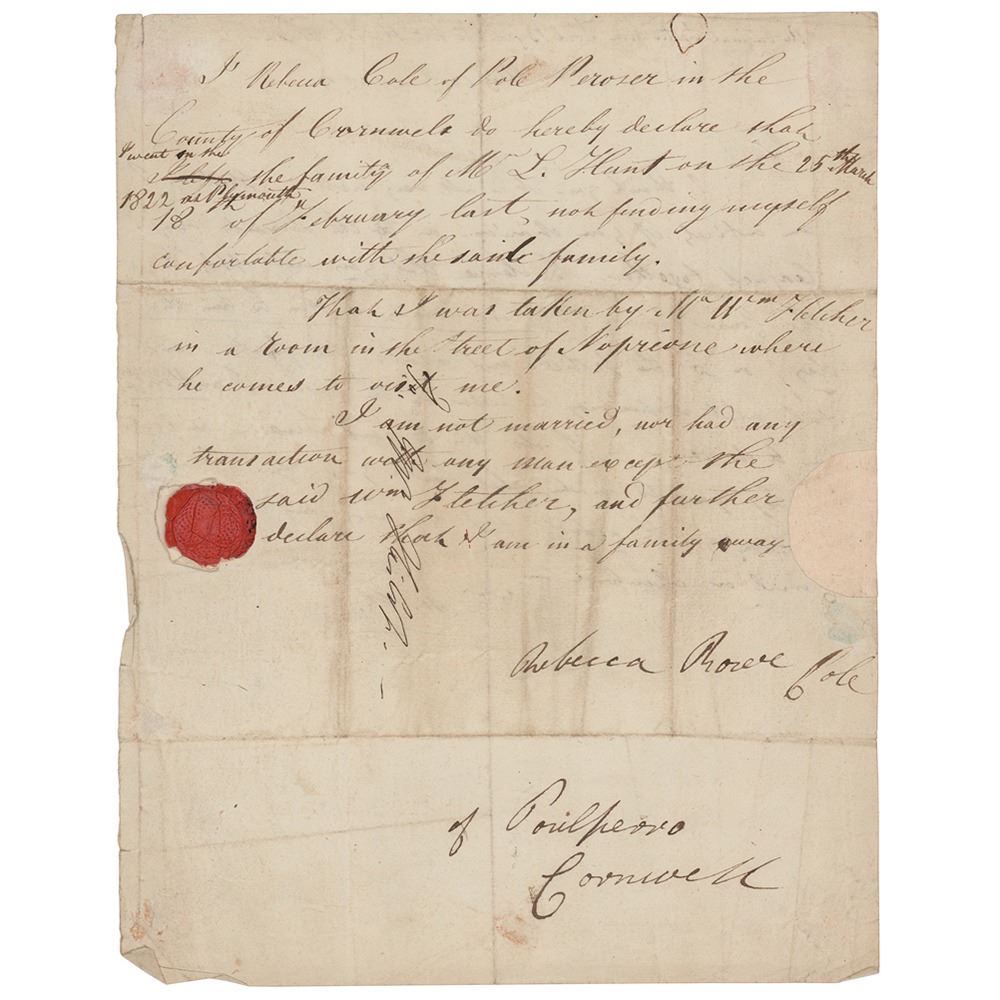 I Rebecca Cole of Pole Peroser in the
County of Cornwels do hereby declare that
I went in the
the family of Mr L. Hunt on the 25th March
1822 at Plymouth
18th of February last, not finding myself
confortable with the said family.
That I was taken by Mr Wm Fletcher
in a room in the Street of where
he comes to visit me.
I am not married, nor had any
transaction with any man except the
said Wm Fletcher, and further
declare that I am in a family away
Rebecca Rowe Cole
of Poulperro
Cornwell